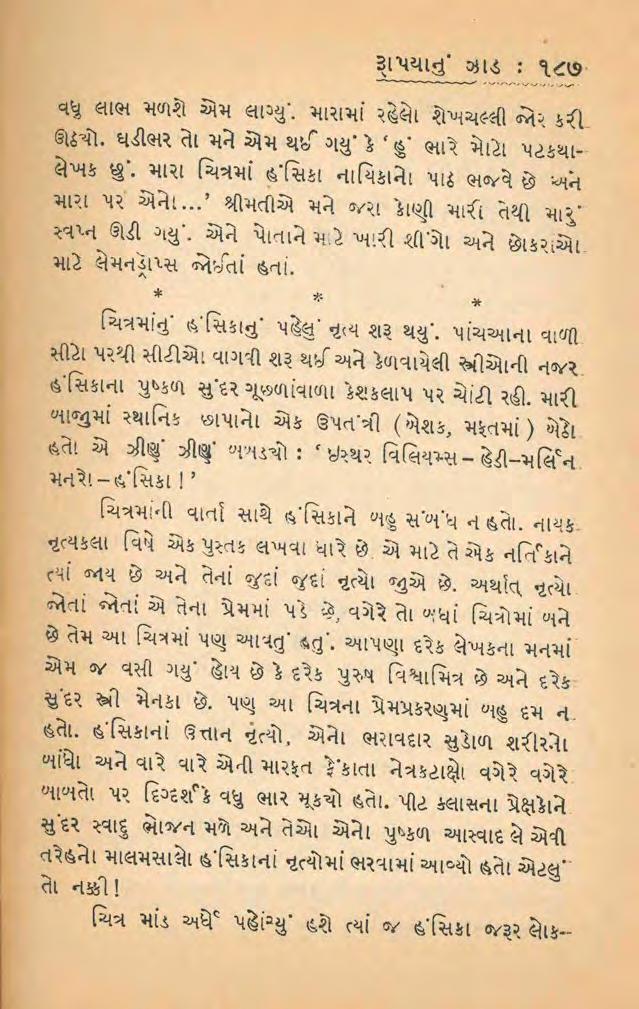 રૂાપયાનું ઝાડ : ૧૮૭
વધુ લાભ મળશે એમ લાગ્યું. મારામાં રહેલો શેખચલ્લી જોર કરી
ઊઠયો. ઘડીભર તો મને એમ થઈ ગયું કે ‘ હું ભારે મોટો પટકથા-
લેખક છું. મારા ચિત્રમાં હંસિકા નાયિકાનો પાઠ ભજવે છે અને
મારા પર એનો...’ શ્રીમતીએ મને જરા કોણી મારી તેથી મારું
સ્વપ્ન ઊડી ગયું. એને પોતાને માટે ખારી શીંગો અને છોકરાંઓ
માટે લેમનડ્રોપ્સ જોઈતાં હતાં.
* * *
ચિત્રમાંનું હંસિકાનું પહેલું નૃત્ય શરૂ થયું. પાંચઆના વાળી
સીટો પરથી સીટીઓ વાગવી શરૂ થઈ અને કેળવાયેલી સ્ત્રીઓની નજર
હંસિકાના પુષ્કળ સુંદર ગૂછળાંવાળા કેશકલાપ પર ચોંટી રહી. મારી
બાજુમાં સ્થાનિક છાપાનો એક ઉપતંત્રી ( બેશક, મફતમાં ) બેઠો
હતો એ ઝીણું ઝીણું બબડયો : ‘ ઇસ્થર વિલિયમ્સ – હેડી–મર્લિન
મનરો – હંસિકા ! ’
ચિત્રમાંની વાર્તા સાથે હંસિકાને બહુ સંબંધ ન હતો. નાયક
નૃત્યકલા વિષે એક પુસ્તક લખવા ધારે છે એ માટે તે એક નર્તિકાને
ત્યાં જાય છે અને તેનાં જુદાં જુદાં નૃત્યો જુએ છે. અર્થાત્ નૃત્યો
જોતાં જોતાં એ તેના પ્રેમમાં પડે છે, વગેરે તો બધાં ચિત્રોમાં બને
છે તેમ આ ચિત્રમાં પણ આવતું હતું. આપણા દરેક લેખકના મનમાં
એમ જ વસી ગયું હોય છે કે દરેક પુરુષ વિશ્વામિત્ર છે અને દરેક
સુંદર સ્ત્રી મેનકા છે. પણ આ ચિત્રના પ્રેમપ્રકરણમાં બહુ દમ ન
હતો. હંસિકાનાં ઉત્તાન નૃત્યો, એનો ભરાવદાર સુડોળ શરીરનો
બાંધો અને વારે વારે એની મારફત ફેંકાતા નેત્રકટાક્ષો વગેરે વગેરે
બાબતો પર દિગ્દર્શકે વધુ ભાર મૂકયો હતો. પીટ ક્લાસના પ્રેક્ષકોને
સુંદર સ્વાદુ ભોજન મળે અને તેઓ એનો પુષ્કળ આસ્વાદ લે એવી
તરેહનો માલમસાલો હંસિકાનાં નૃત્યોમાં ભરવામાં આવ્યો હતો એટલું
તો નક્કી !
ચિત્ર માંડ અર્ધે પહોંચ્યું હશે ત્યાં જ હંસિકા જરૂર લોક–